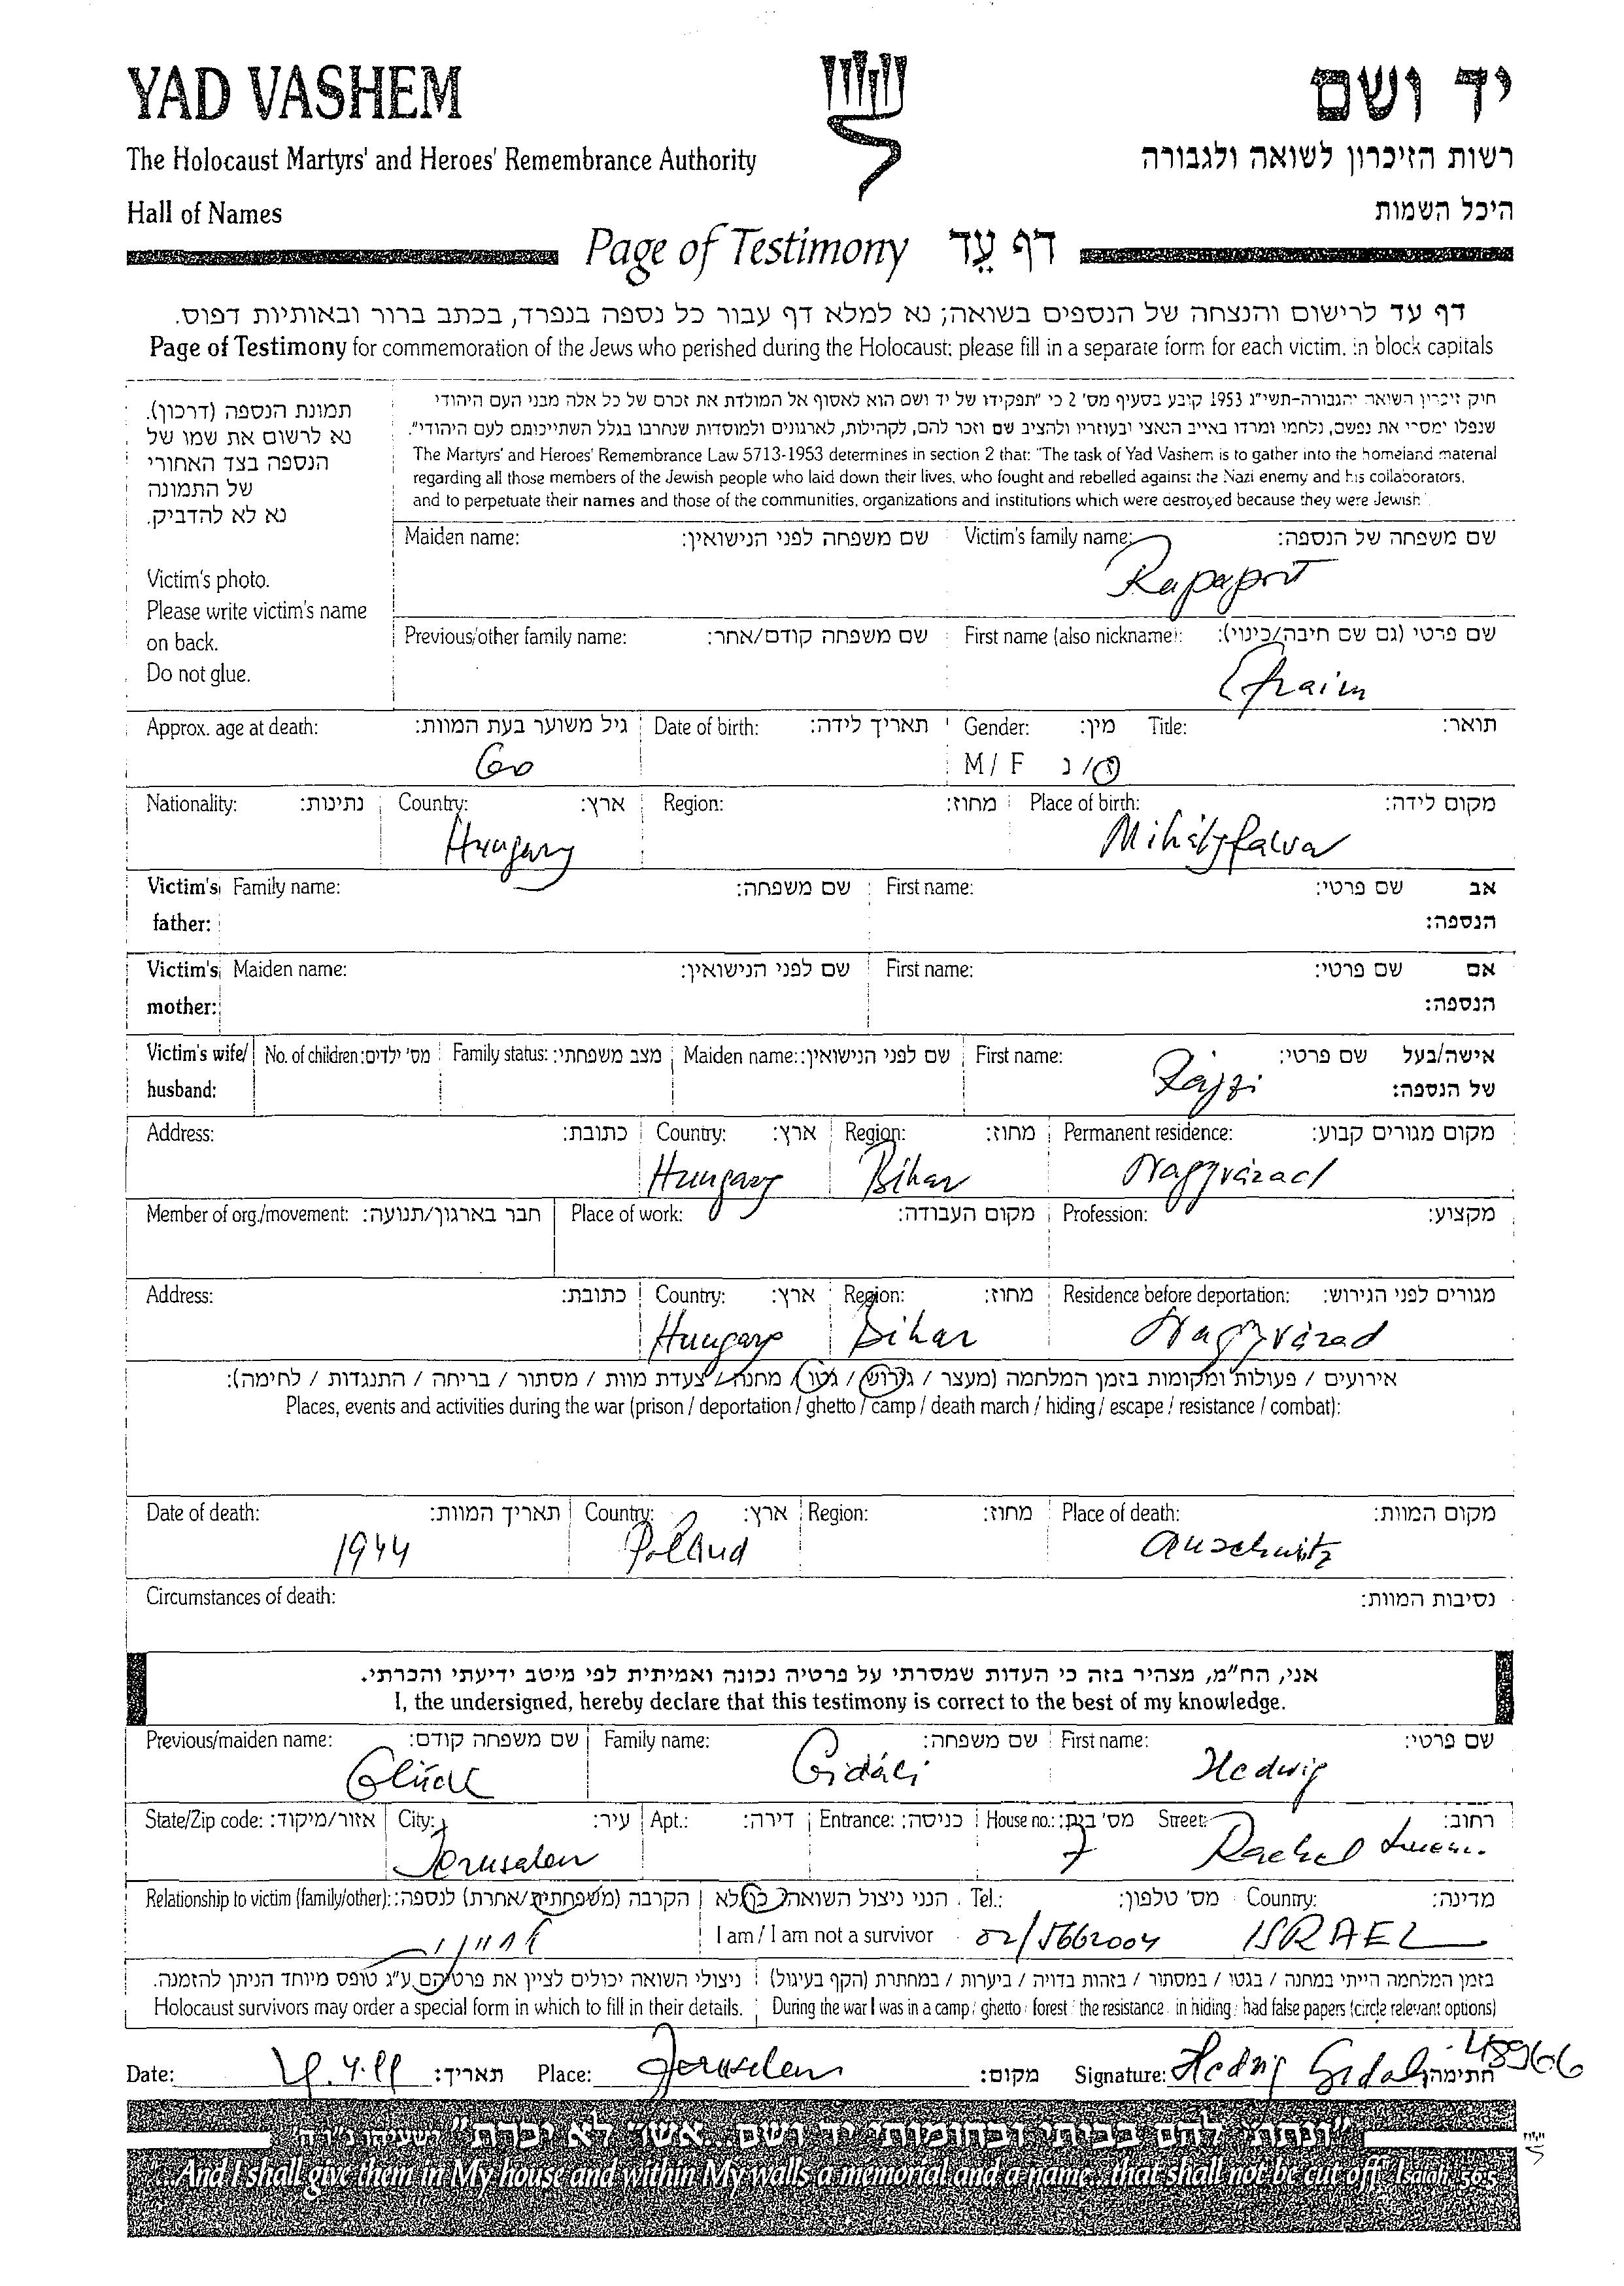 YAD VASHEM
יד ושם
The Holocaust Martyrs' and Heroes' Remembrance Authority
רשות הזיכרון לשואה ולגבורה
Hall of Names
היכל השמות
Page of Testimony דף עֵד
דף עד לרישום והנצחה של הנספים בשואה; נא למלא דף עבור כל נספה בנפרד, בכתב ברור ובאותיות דפוס.
Page of Testimony for commemoration of the Jews who perished during the Holocaust; please fill in a separate form for each victim, in block capitals
תמונת הנספה (דרכון).
נא לרשום את שמו של
הנספה בצד האחורי
של התמונה
נא לא להדביק.
Victim's photo.
Please write victim's name
on back.
Do not glue.
חוק זיכרון השואה והגבורה-תשי"ג 1953 קובע בסעיף מס' 2 כי "תפקידו של יד ושם הוא לאסוף אל המולדת את זכרם של כל אלה מבני העם היהודי
שנפלו ומסרו את נפשם, נלחמו ומרדו באויב הנאצי ובעוזריו ולהציב שם וזכר להם, לקהילות, לארגונים ולמוסדות שנחרבו בגלל השתייכותם לעם היהודי".
The Martyrs' and Heroes' Remembrance Law 5713-1953 determines in section 2 that: "The task of Yad Vashem is to gather into the homeland material
regarding all those members of the Jewish people who laid down their lives, who fought and rebelled against the Nazi enemy and his collaborators,
and to perpetuate their names and those of the communities, organizations and institutions which were destroyed because they were Jewish".
Maiden name: שם משפחה לפני הנישואין: Victim's family name: שם משפחה של הנספה:
Rapaport
Previous/other family name: שם משפחה קודם/אחר: First name (also nickname): שם פרטי (גם שם חיבה/כינוי):
Efraim
Approx. age at death: גיל משוער בעת המוות: Date of birth: תאריך לידה: Gender: מין: Title: תואר:
60 M / F ז / נ
Nationality: נתינות: Country: ארץ: Region: מחוז: Place of birth: מקום לידה:
Hungary Mihályfalva
Victim's Family name: שם משפחה: First name: שם פרטי: אב
father: הנספה:
Victim's Maiden name: שם לפני הנישואין: First name: שם פרטי: אם
mother: הנספה:
Victim's wife/ No. of children: מס' ילדים: Family status: מצב משפחתי: Maiden name: שם לפני הנישואין: First name: שם פרטי: אישה/בעל
husband: של הנספה:
Address: כתובת: Country: ארץ: Region: מחוז: Permanent residence: מקום מגורים קבוע:
Hungary Bihar Nagyvárad
Member of org./movement: חבר בארגון/תנועה: Place of work: מקום העבודה: Profession: מקצוע:
Address: כתובת: Country: ארץ: Region: מחוז: Residence before deportation: מגורים לפני הגירוש:
Hungary Bihar Nagyvárad
אירועים / פעולות ומקומות בזמן המלחמה (מעצר / גירוש / גטו / מחנה / צעדת מוות / מסתור / בריחה / התנגדות / לחימה):
Places, events and activities during the war (prison / deportation / ghetto / camp / death march / hiding / escape / resistance / combat):
Date of death: תאריך המוות: Country: ארץ: Region: מחוז: Place of death: מקום המוות:
1944 Poland Auschwitz
Circumstances of death: נסיבות המוות:
אני, הח"מ, מצהיר בזה כי העדות שמסרתי על פרטיה נכונה ואמיתית לפי מיטב ידיעתי והכרתי.
I, the undersigned, hereby declare that this testimony is correct to the best of my knowledge.
Previous/maiden name: שם משפחה קודם: Family name: שם משפחה: First name: שם פרטי:
Glück Gidáli Hedwig
State/Zip code: אזור/מיקוד: City: עיר: Apt.: דירה: Entrance: כניסה: House no.: מס' בית: Street: רחוב:
Jerusalem 7 Rachel
Relationship to victim (family/other): הקרבה (משפחתית/אחרת) לנספה: הנני ניצול השואה כן/לא Tel.: מס' טלפון: Country: מדינה:
I am / I am not a survivor 02/5662004 ISRAEL
ניצולי השואה יכולים לציין את פרטיהם ע"ג טופס מיוחד הניתן להזמנה. בזמן המלחמה הייתי במחנה / בגטו / במסתור / בזהות בדויה / ביערות / במחתרת (הקף בעיגול)
Holocaust survivors may order a special form in which to fill in their details. During the war I was in a camp / ghetto / forest / the resistance / in hiding / had false papers (circle relevant options)
48966
Date: תאריך: Place: Jerusalem מקום: Signature: Hedwig Gidali חתימה:
"ונתתי להם בביתי ובחומותי יד ושם...אשר לא יכרת" ישעיהו נ"ו ה'
...And I shall give them in My house and within My walls a memorial and a name...that shall not be cut off." Isaiah 56:5